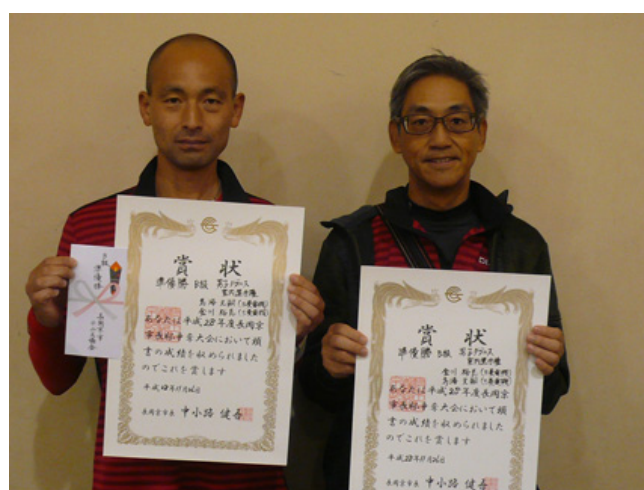 B級
準優勝
賞状
準優勝 B級 男子ダブルス
あなたは平成28年度長岡京
市長杯争奪大会において頭
書の成績を収められました
のでこれを賞します
平成28年11月26日
長岡京市長 中小路 健吾
賞状
準優勝 B級 男子ダブルス
あなたは平成28年度長岡京
市長杯争奪大会において頭
書の成績を収められました
のでこれを賞します
平成28年11月26日
長岡京市長 中小路 健吾